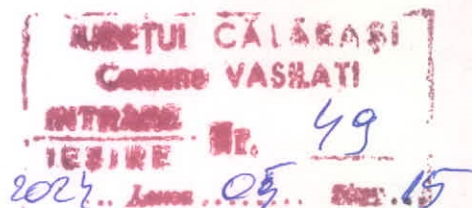 JUDEŢUL CĂLĂRAŞI
Comuna VASILATI
INTRARE
IEŞIRE Nr. 49
2024 Luna 05 Ziua 15